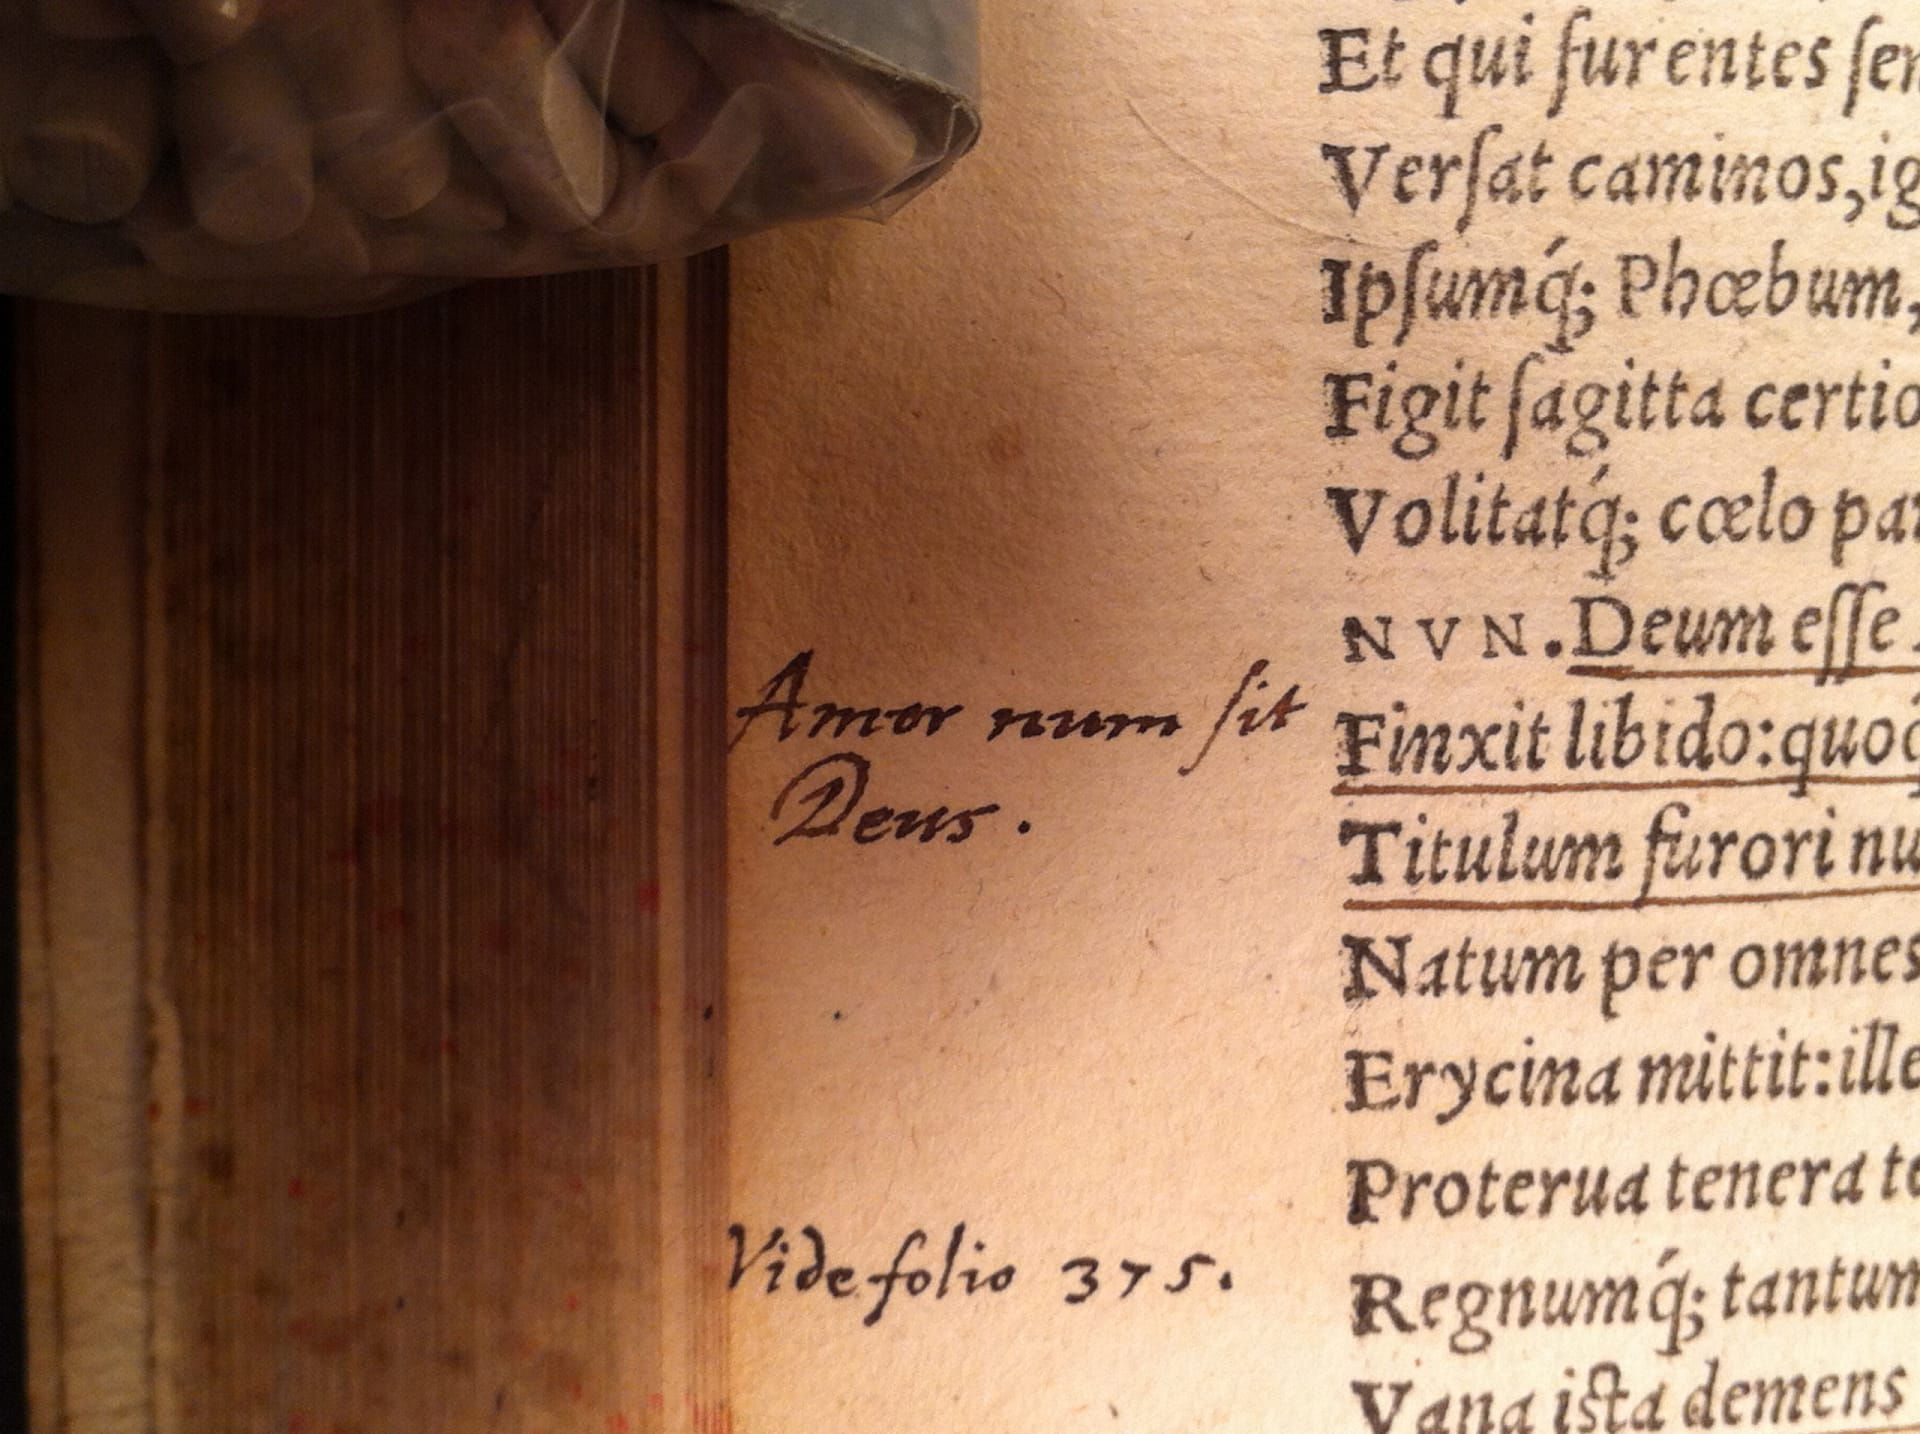 Et qui furentes ſem
Verſat caminos, ig
Ipſumq́; Phœbum,
Figit ſagitta certio
Volitatq́; cœlo par
NVN. Deum eſſe
Amor num ſit
Finxit libido: quoq́
Deus.
Titulum furori nu
Natum per omnes
Erycina mittit: ille
Proterua tenera te
Vide folio 375.
Regnumq́; tantum
Vana iſta demens